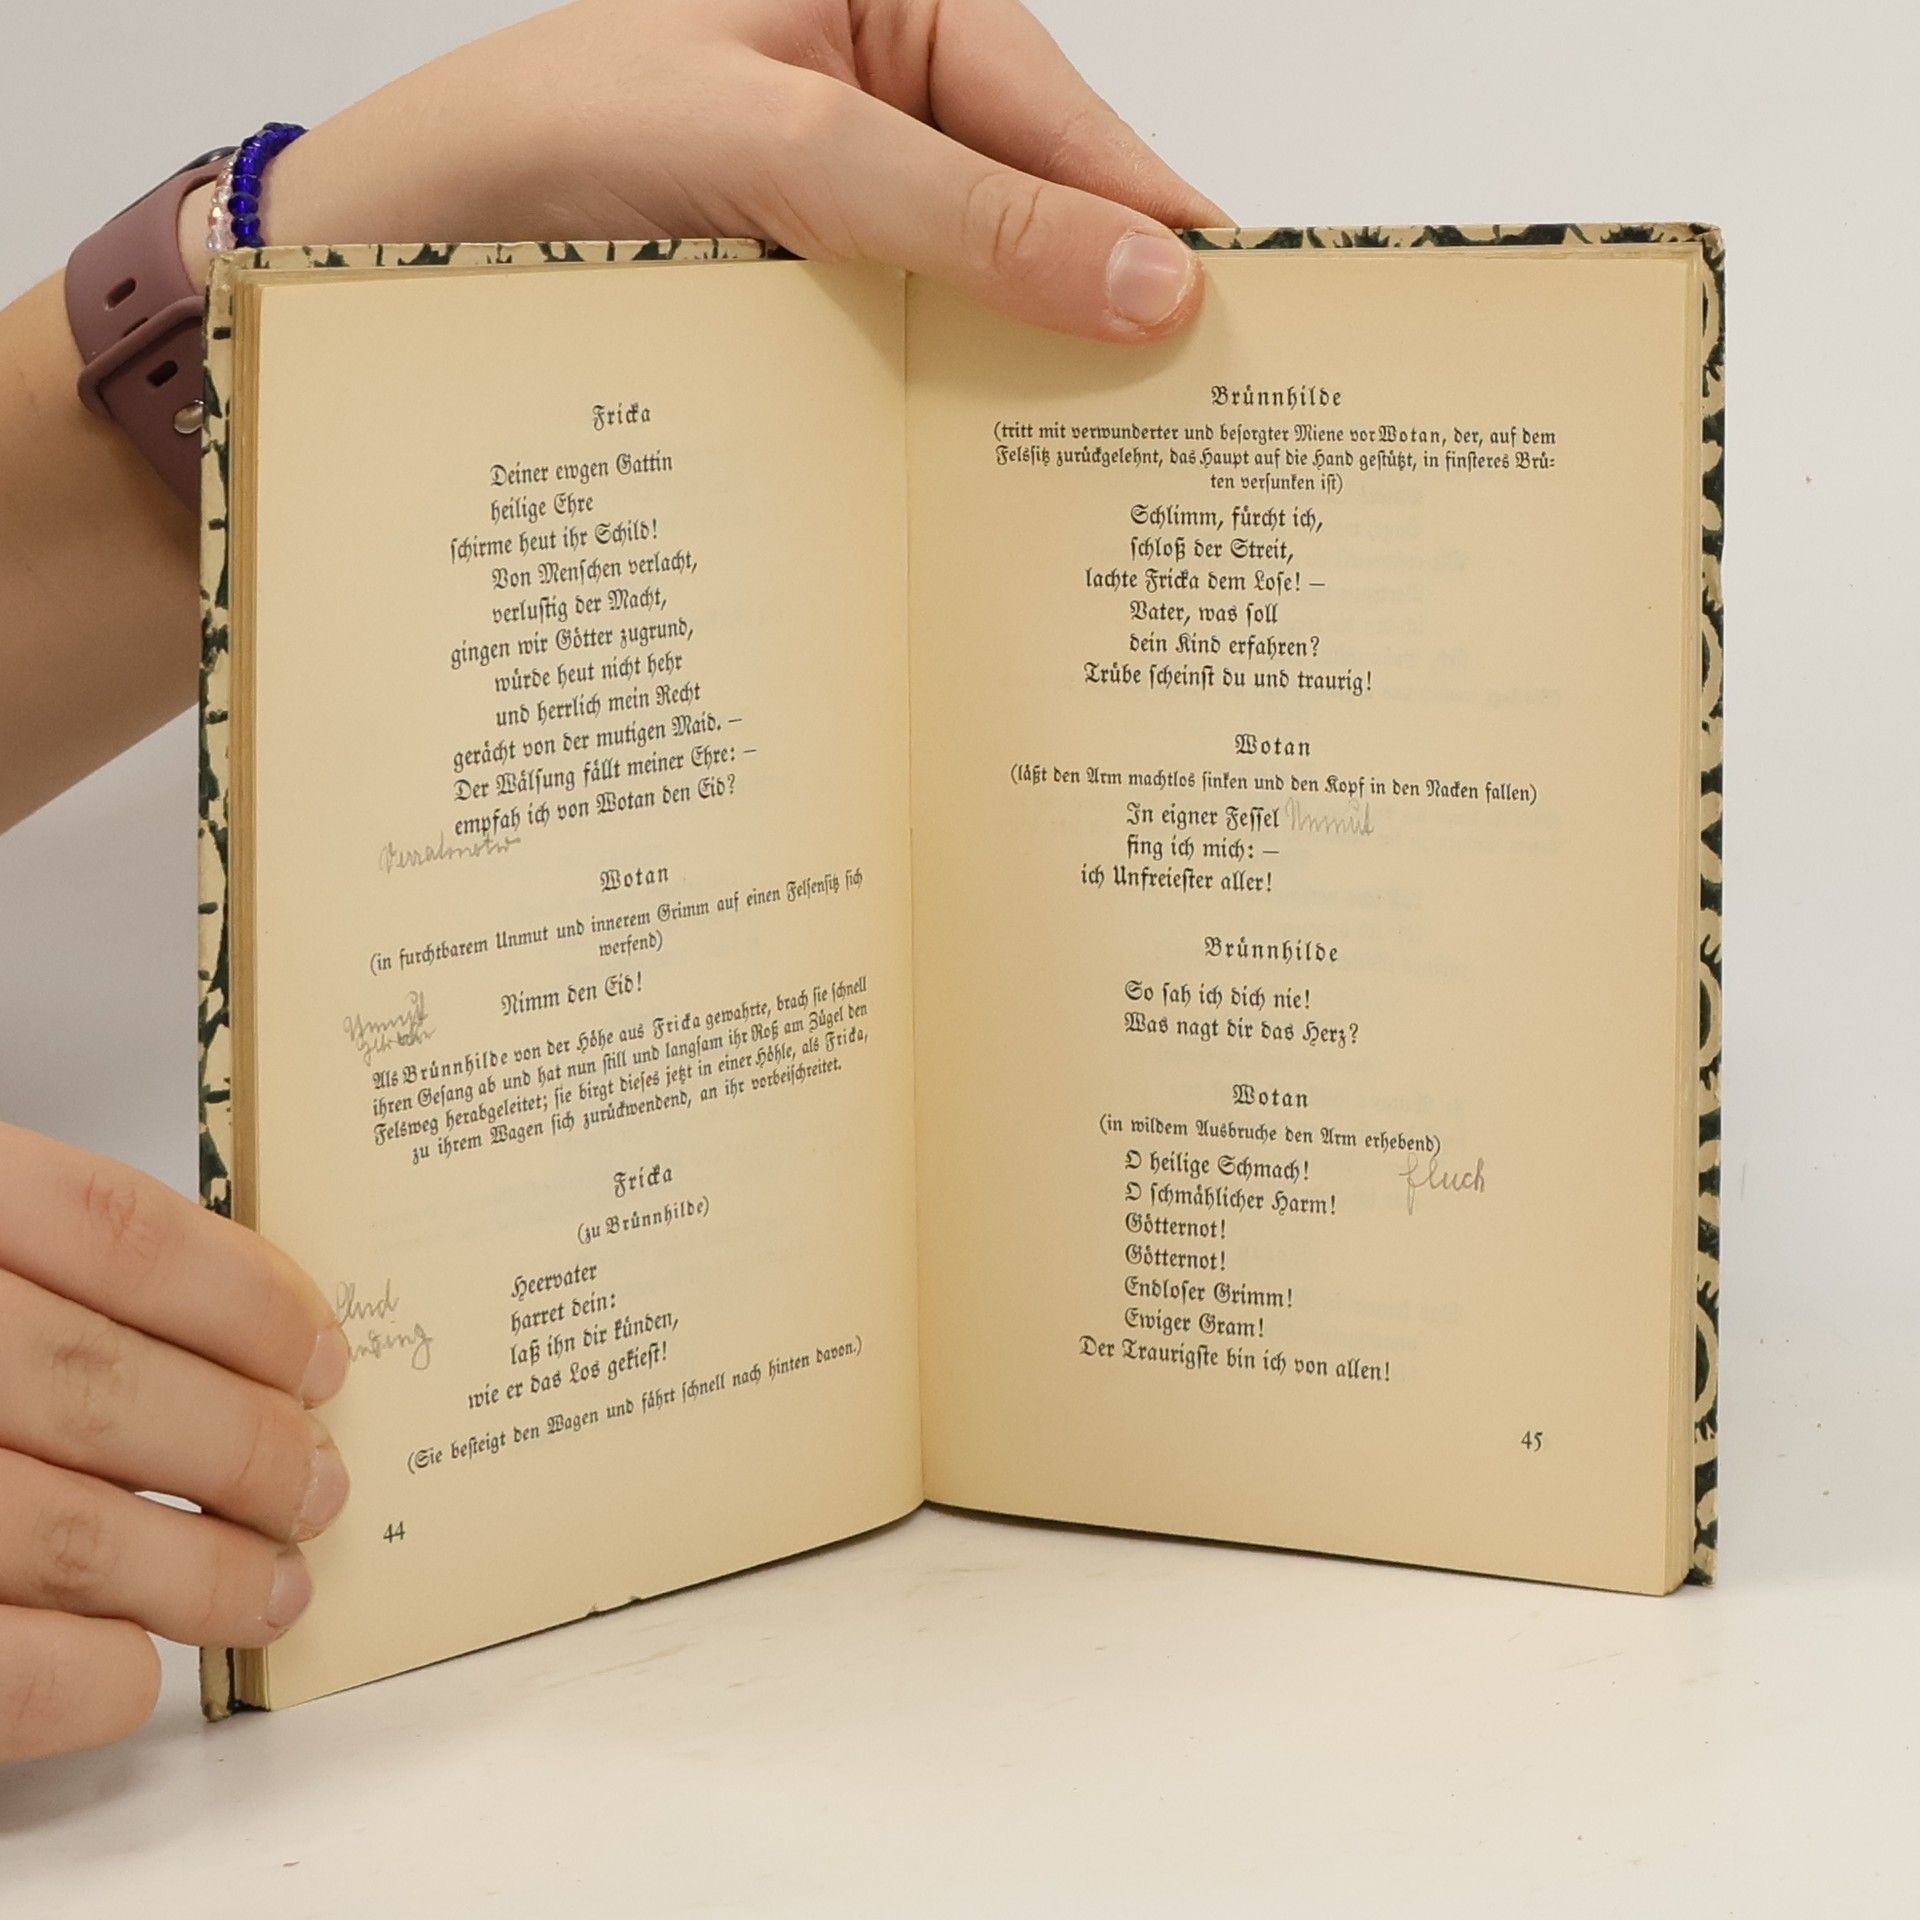 Fricka
Deiner ewgen Gattin
heilige Ehre
schirme heut ihr Schild!
Von Menschen verlacht,
verlustig der Macht,
gingen wir Götter zugrund,
würde heut nicht hehr
und herrlich mein Recht
gerächt von der mutigen Maid. —
Der Wälsung fällt meiner Ehre: —
empfah ich von Wotan den Eid?
Wotan
(in furchtbarem Unmut und innerem Grimm auf einen Felsensitz sich
werfend)
Nimm den Eid!
Unmut
Als Brünnhilde von der Höhe aus Fricka gewahrte, brach sie schnell
ihren Gesang ab und hat nun still und langsam ihr Roß am Zügel den
Felsweg herabgeleitet; sie birgt dieses jetzt in einer Höhle, als Fricka,
zu ihrem Wagen sich zurückwendend, an ihr vorbeischreitet.
Fricka
(zu Brünnhilde)
Heervater
harret dein:
laß ihn dir künden,
wie er das Los gekiest!
(Sie besteigt den Wagen und fährt schnell nach hinten davon.)
44
Brünnhilde
(tritt mit verwunderter und besorgter Miene vor Wotan, der, auf dem
Felssitz zurückgelehnt, das Haupt auf die Hand gestützt, in finsteres Brü-
ten versunken ist)
Schlimm, fürcht ich,
schloß der Streit,
lachte Fricka dem Lose! —
Vater, was soll
dein Kind erfahren?
Trübe scheinst du und traurig!
Wotan
(läßt den Arm machtlos sinken und den Kopf in den Nacken fallen)
In eigner Fessel Unmut
fing ich mich: —
ich Unfreiester aller!
Brünnhilde
So sah ich dich nie!
Was nagt dir das Herz?
Wotan
(in wildem Ausbruche den Arm erhebend)
O heilige Schmach! fluch
O schmählicher Harm!
Götternot!
Götternot!
Endloser Grimm!
Ewiger Gram!
Der Traurigste bin ich von allen!
45